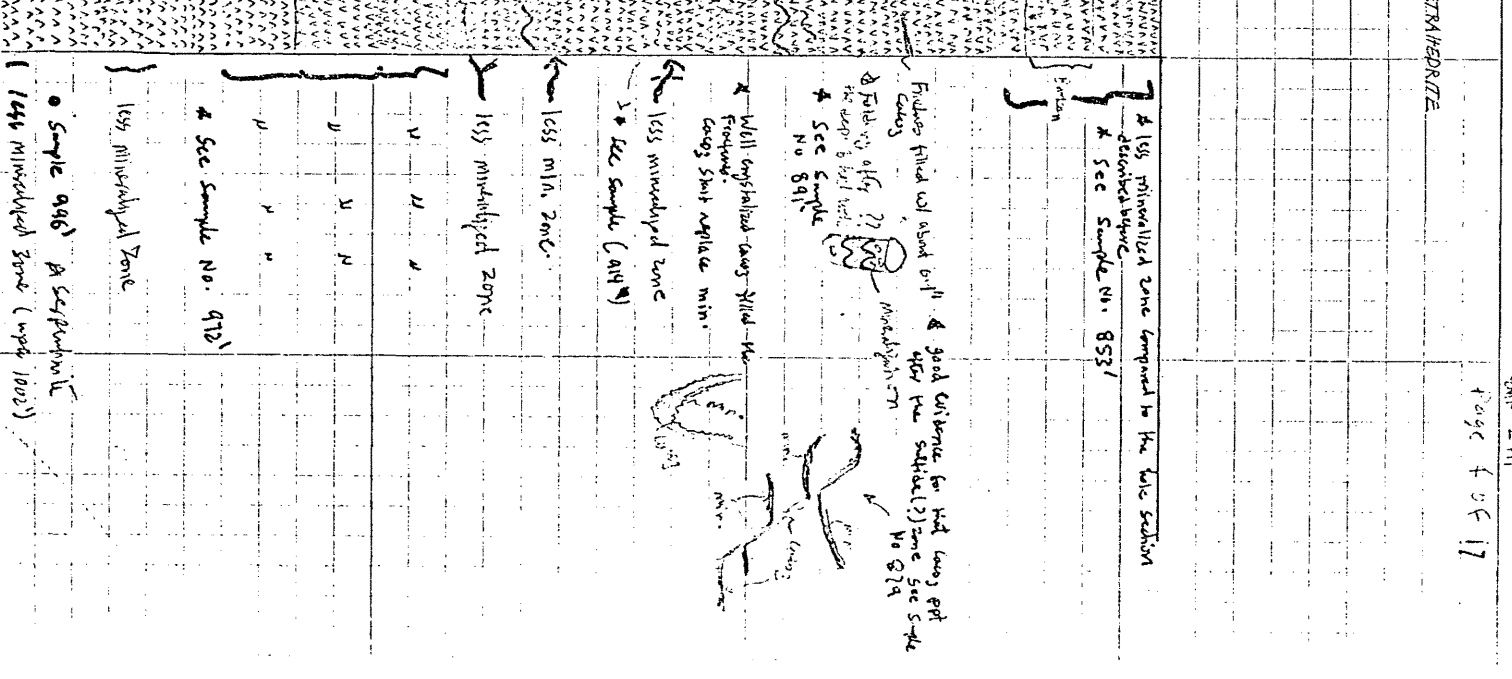 TRAHEDRITE
Page of 17
* less mineralized zone compared to the hole section
described before
* See Sample No. 853'
Fractures filled w/ about 0.1" * good evidence for that CaCO3 ppt
CaCO3 after the sulfide(?) zone see sample
No 879
* Folding after ??
the dep.
Mineralization
* See Sample
No 891'
* Well crystallized CaCO3 filled the
Fractures.
CaCO3 start replace min.
min.
min.
CaCO3
min.
CaCO3
less mineralized zone
* see sample (914')
less min. zone.
less mineralized zone
" " "
" " "
" " "
* See Sample No. 972'
less mineralized zone
• Sample 996' A serpentinite
less mineralized zone ( 1002')